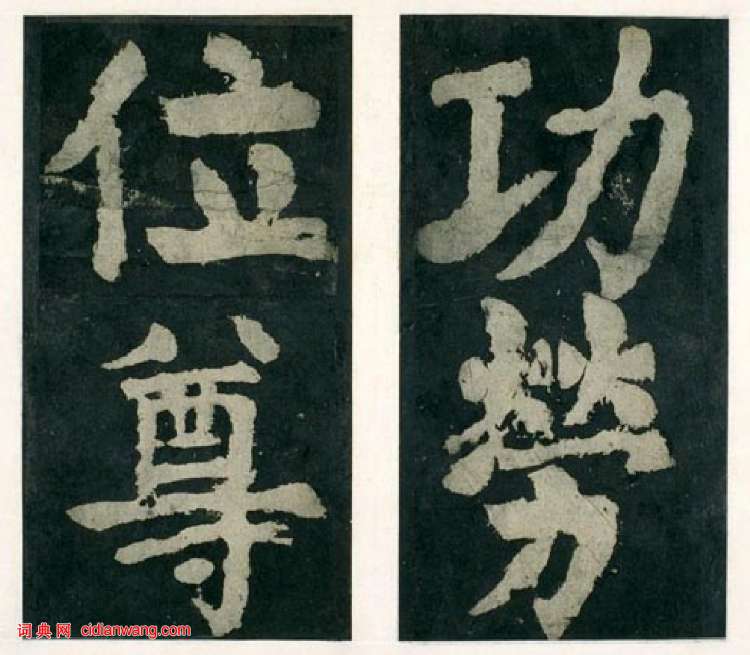 功勞
位尊
词典网 cidianwang.com